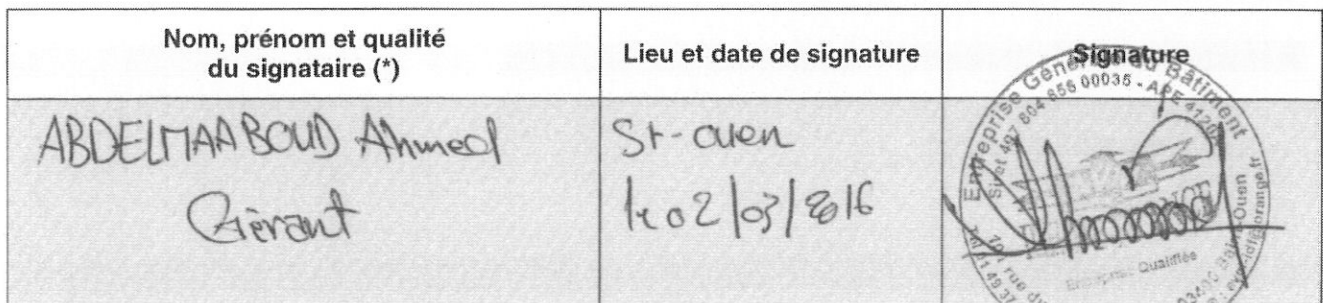 Nom, prénom et qualité
du signataire (*)
Lieu et date de signature
Signature
ABDELMAABOUD Ahmed
Gérant
St-ouen
le 02/03/2016
Entreprise Générale du Bâtiment
Siret 497 804 656 00035 - APE 4120
Entreprise Qualifiée